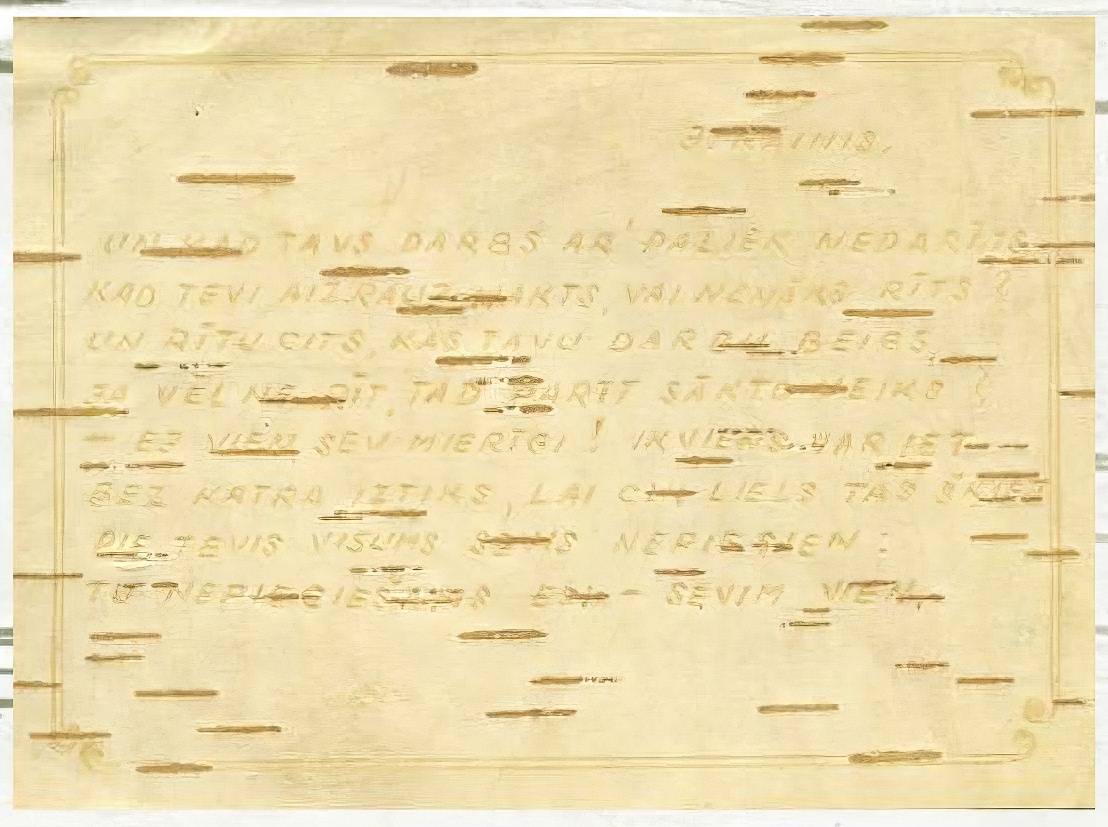 J. RAINIS.
UN KAD TAVS DARBS AR' PALIEK NEDARĪTS
KAD TEVI AIZRAUJ NAKTS, VAI NENĀKS RĪTS?
UN RĪTU CITS, KAS TAVU DARBU BEIGS,
JA VĒL NE RĪT, TAD PARĪT SĀKTO VEIKS?
– EJ VIEN SEV MIERĪGI! IKVIENS VAR IET –
BEZ KATRA IZTIKS, LAI CIK LIELS TAS ŠĶIET
PIE TEVIS VISUMS SEVIS NEPIESIEN:
TU NEPIECIEŠAMS ESI – SEVIM VIEN.